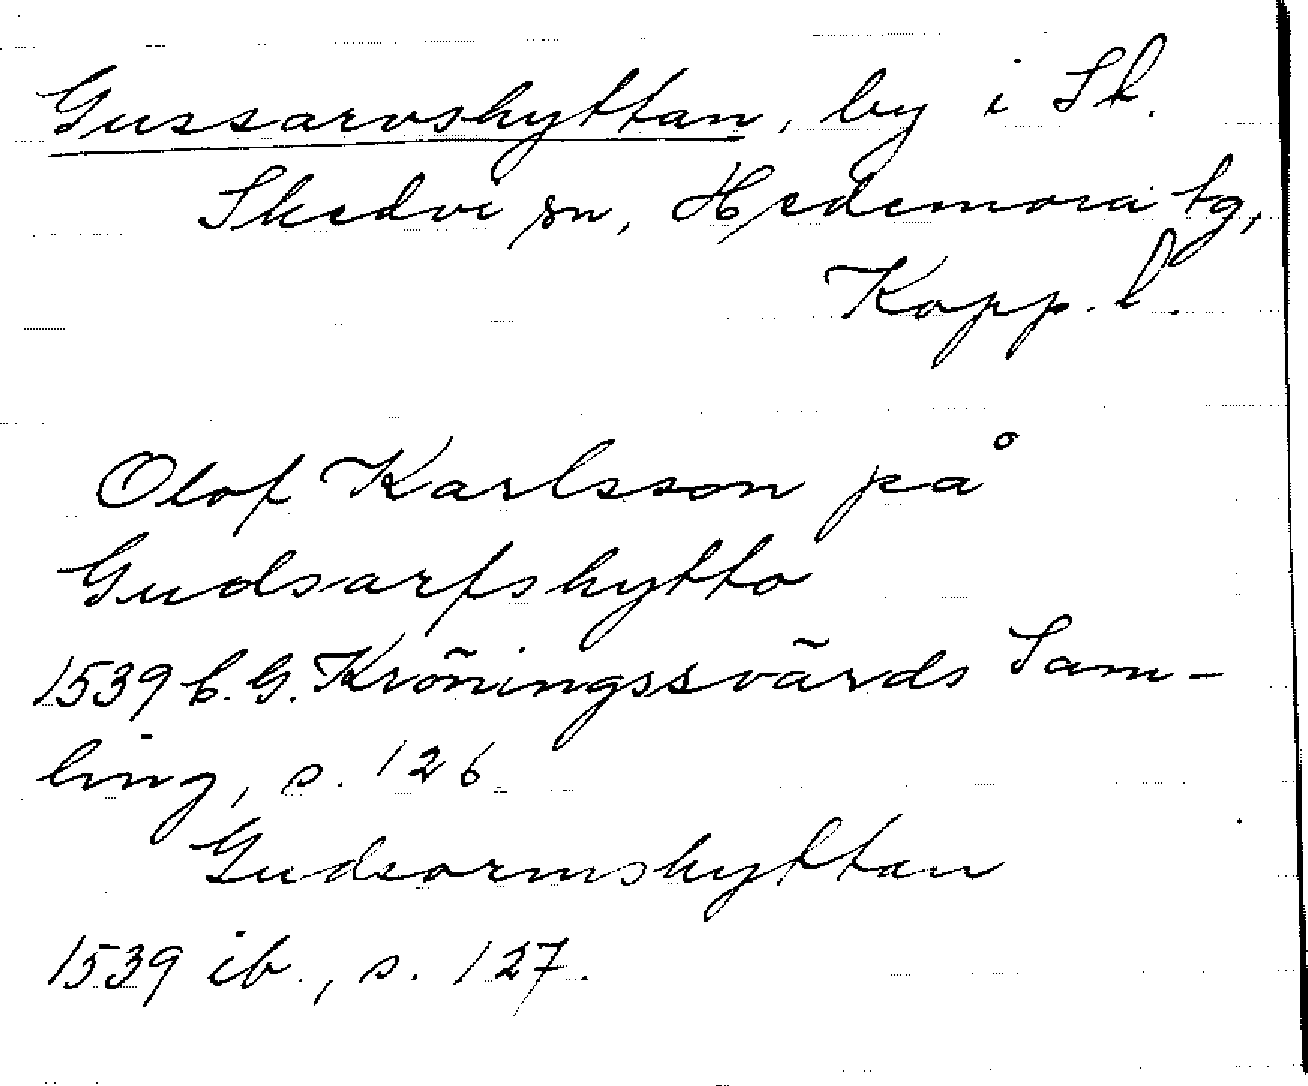 Gussarvshyttan, by i St.
Skedvi sn, Hedemora tg,
Kopp. l.
Olof Karlsson på
Gudsarfshytto
1539 C. G. Kröningssvärds Sam-
ling, s. 126
Gudsormshyttan
1539 ib., s. 127.